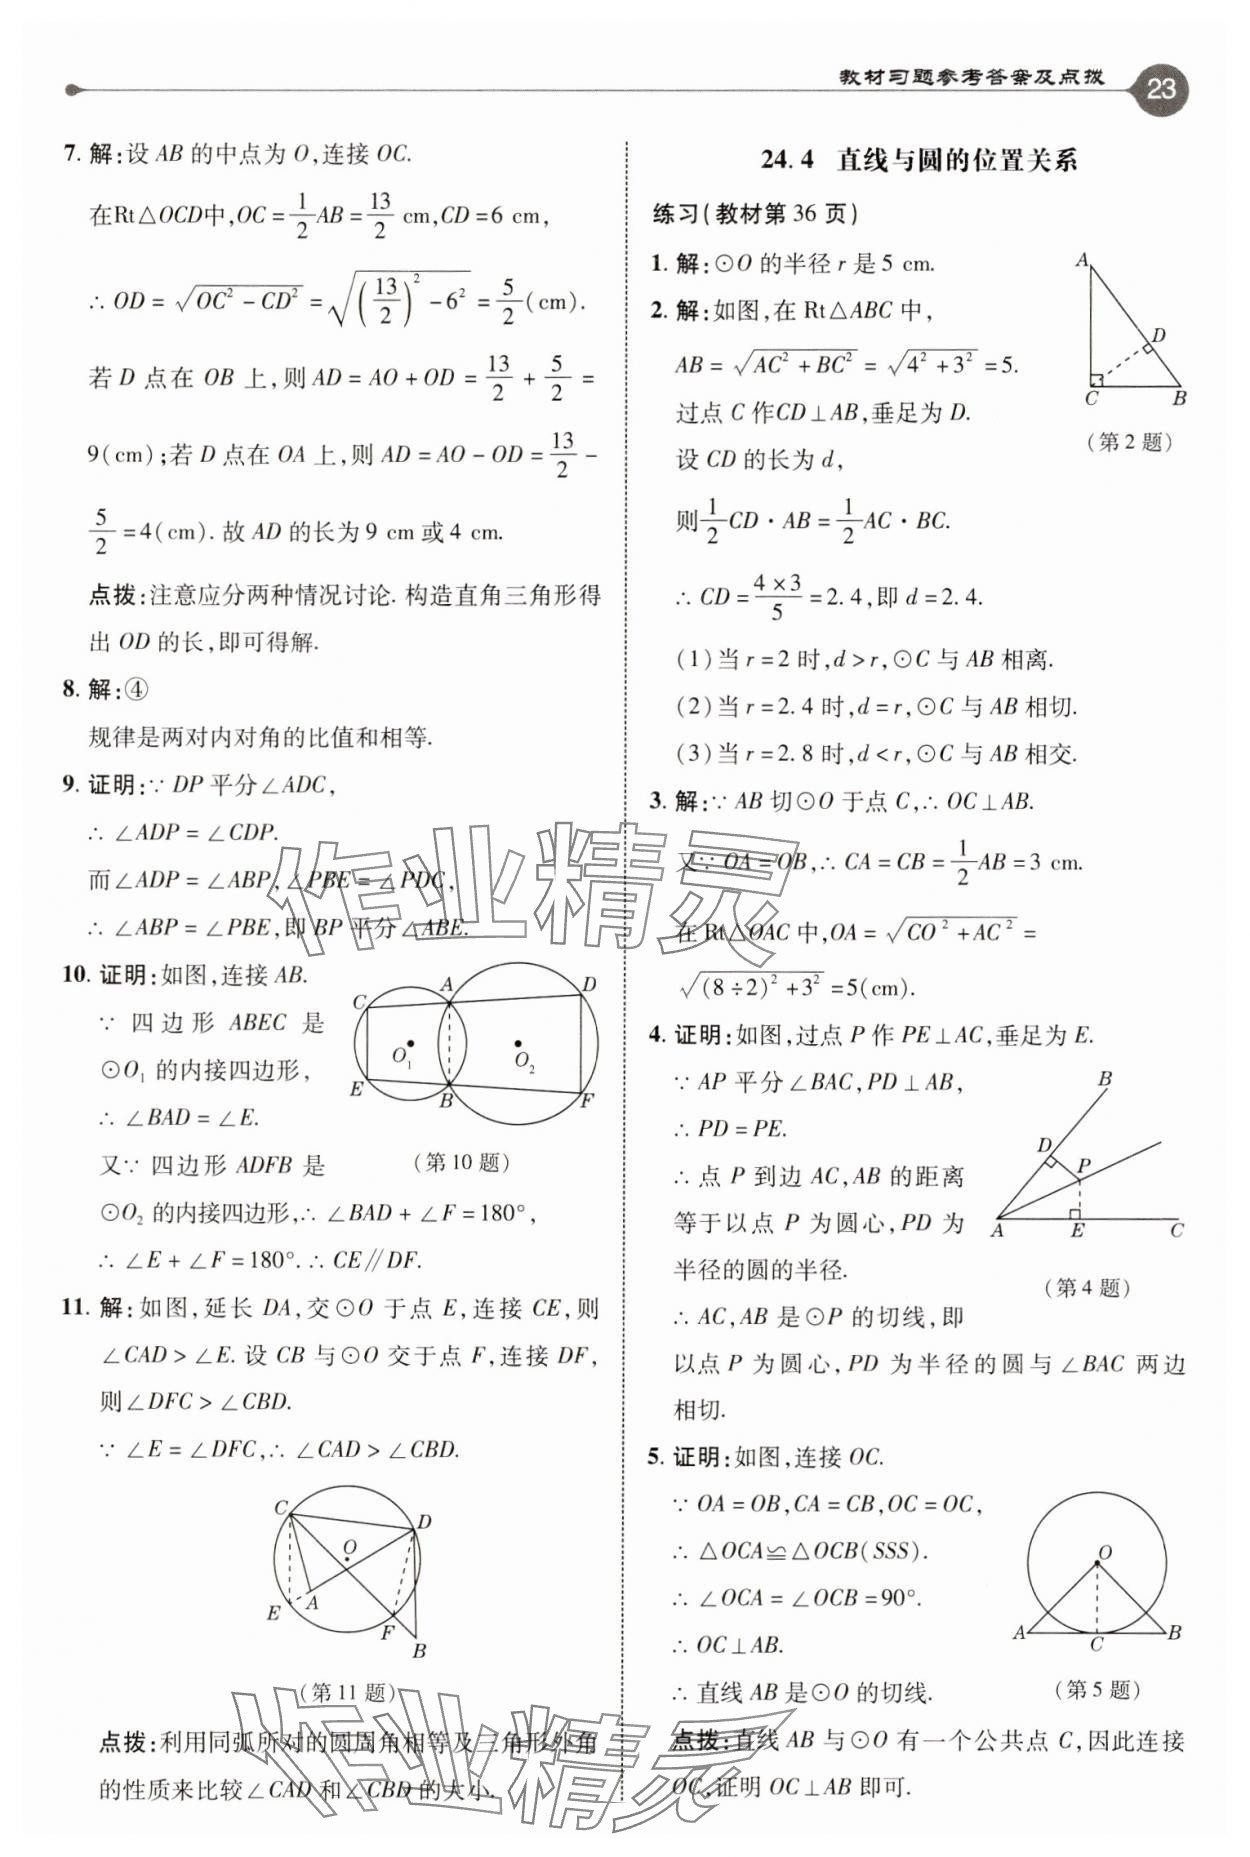 教材习题参考答案及点拨 23
7. 解:设 AB 的中点为 O,连接 OC.
在Rt△OCD中,OC=1/2AB=13/2 cm,CD=6 cm,
∴ OD=√(OC²-CD²)=√((13/2)²-6²)=5/2(cm).
若 D 点在 OB 上,则 AD=AO+OD=13/2+5/2=
9(cm);若 D 点在 OA 上,则 AD=AO-OD=13/2-
5/2=4(cm).故 AD 的长为 9 cm 或 4 cm.
点拨:注意应分两种情况讨论.构造直角三角形得
出 OD 的长,即可得解.
8. 解:④
规律是两对内对角的比值和相等.
9. 证明:∵ DP 平分∠ADC,
∴ ∠ADP=∠CDP.
而∠ADP=∠ABP,∠PBE=∠PDC,
∴ ∠ABP=∠PBE,即 BP 平分∠ABE.
10. 证明:如图,连接 AB.
∵ 四边形 ABEC 是
⊙O₁ 的内接四边形,
∴ ∠BAD=∠E.
又∵ 四边形 ADFB 是
⊙O₂ 的内接四边形,∴ ∠BAD+∠F=180°,
∴ ∠E+∠F=180°.∴ CE∥DF.
C A D O₁ O₂ E B F
(第 10 题)
11. 解:如图,延长 DA,交⊙O 于点 E,连接 CE,则
∠CAD>∠E.设 CB 与⊙O 交于点 F,连接 DF,
则∠DFC>∠CBD.
∵ ∠E=∠DFC,∴ ∠CAD>∠CBD.
C D O E A F B
(第 11 题)
点拨:利用同弧所对的圆周角相等及三角形外角
的性质来比较∠CAD 和∠CBD 的大小.
24.4 直线与圆的位置关系
练习(教材第 36 页)
1. 解:⊙O 的半径 r 是 5 cm.
2. 解:如图,在 Rt△ABC 中,
AB=√(AC²+BC²)=√(4²+3²)=5.
过点 C 作CD⊥AB,垂足为 D.
设 CD 的长为 d,
则1/2CD·AB=1/2AC·BC.
∴ CD=4×3/5=2.4,即 d=2.4.
(1)当 r=2 时,d>r,⊙C 与 AB 相离.
(2)当 r=2.4 时,d=r,⊙C 与 AB 相切.
(3)当 r=2.8 时,d<r,⊙C 与 AB 相交.
A D C B
(第 2 题)
3. 解:∵ AB 切⊙O 于点 C,∴ OC⊥AB.
又∵ OA=OB,∴ CA=CB=1/2AB=3 cm.
在 Rt△OAC 中,OA=√(CO²+AC²)=
√((8÷2)²+3²)=5(cm).
4. 证明:如图,过点 P 作 PE⊥AC,垂足为 E.
∵ AP 平分∠BAC,PD⊥AB,
∴ PD=PE.
∴ 点 P 到边 AC,AB 的距离
等于以点 P 为圆心,PD 为
半径的圆的半径.
∴ AC,AB 是⊙P 的切线,即
以点 P 为圆心,PD 为半径的圆与∠BAC 两边
相切.
B D P A E C
(第 4 题)
5. 证明:如图,连接 OC.
∵ OA=OB,CA=CB,OC=OC,
∴ △OCA≌△OCB(SSS).
∴ ∠OCA=∠OCB=90°.
∴ OC⊥AB.
∴ 直线 AB 是⊙O 的切线.
O A C B
(第 5 题)
点拨:直线 AB 与⊙O 有一个公共点 C,因此连接
OC,证明 OC⊥AB 即可.
作业精灵
作业精灵